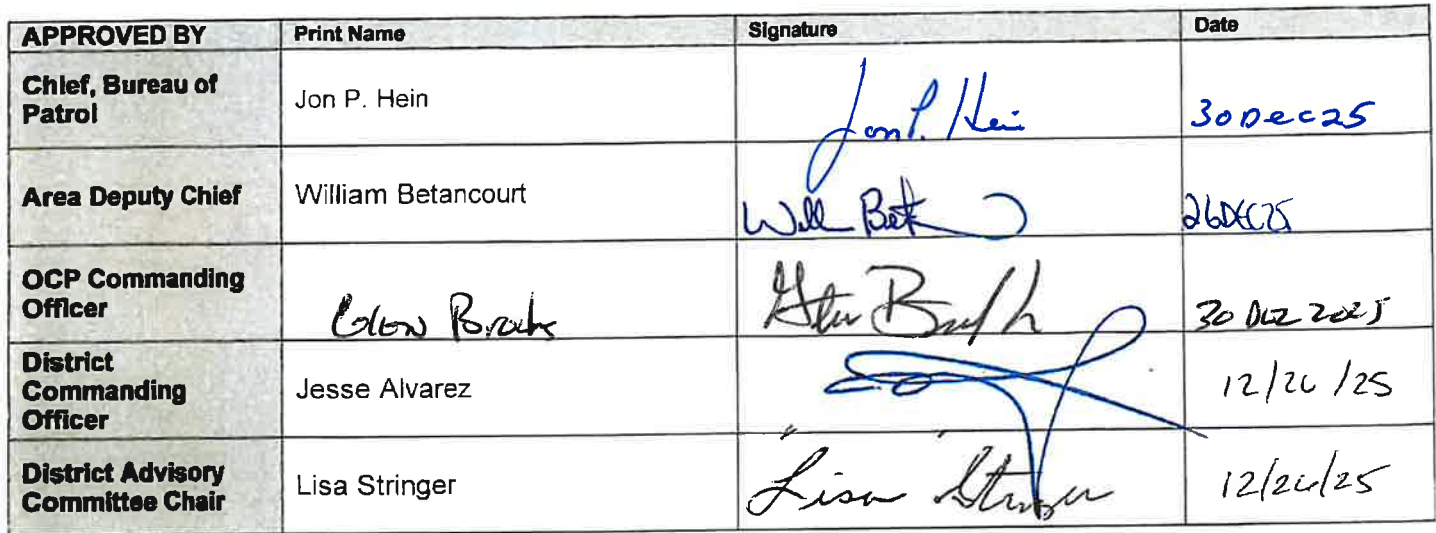 APPROVED BY Print Name Signature Date
Chief, Bureau of
Patrol
Jon P. Hein Jon P. Hein 30Dec25
Area Deputy Chief William Betancourt 26DEC25
OCP Commanding
Officer
Glen Brooks 30 DEC 2025
District
Commanding
Officer
Jesse Alvarez 12/26/25
District Advisory
Committee Chair
Lisa Stringer "Lisa Stringer" 12/26/25